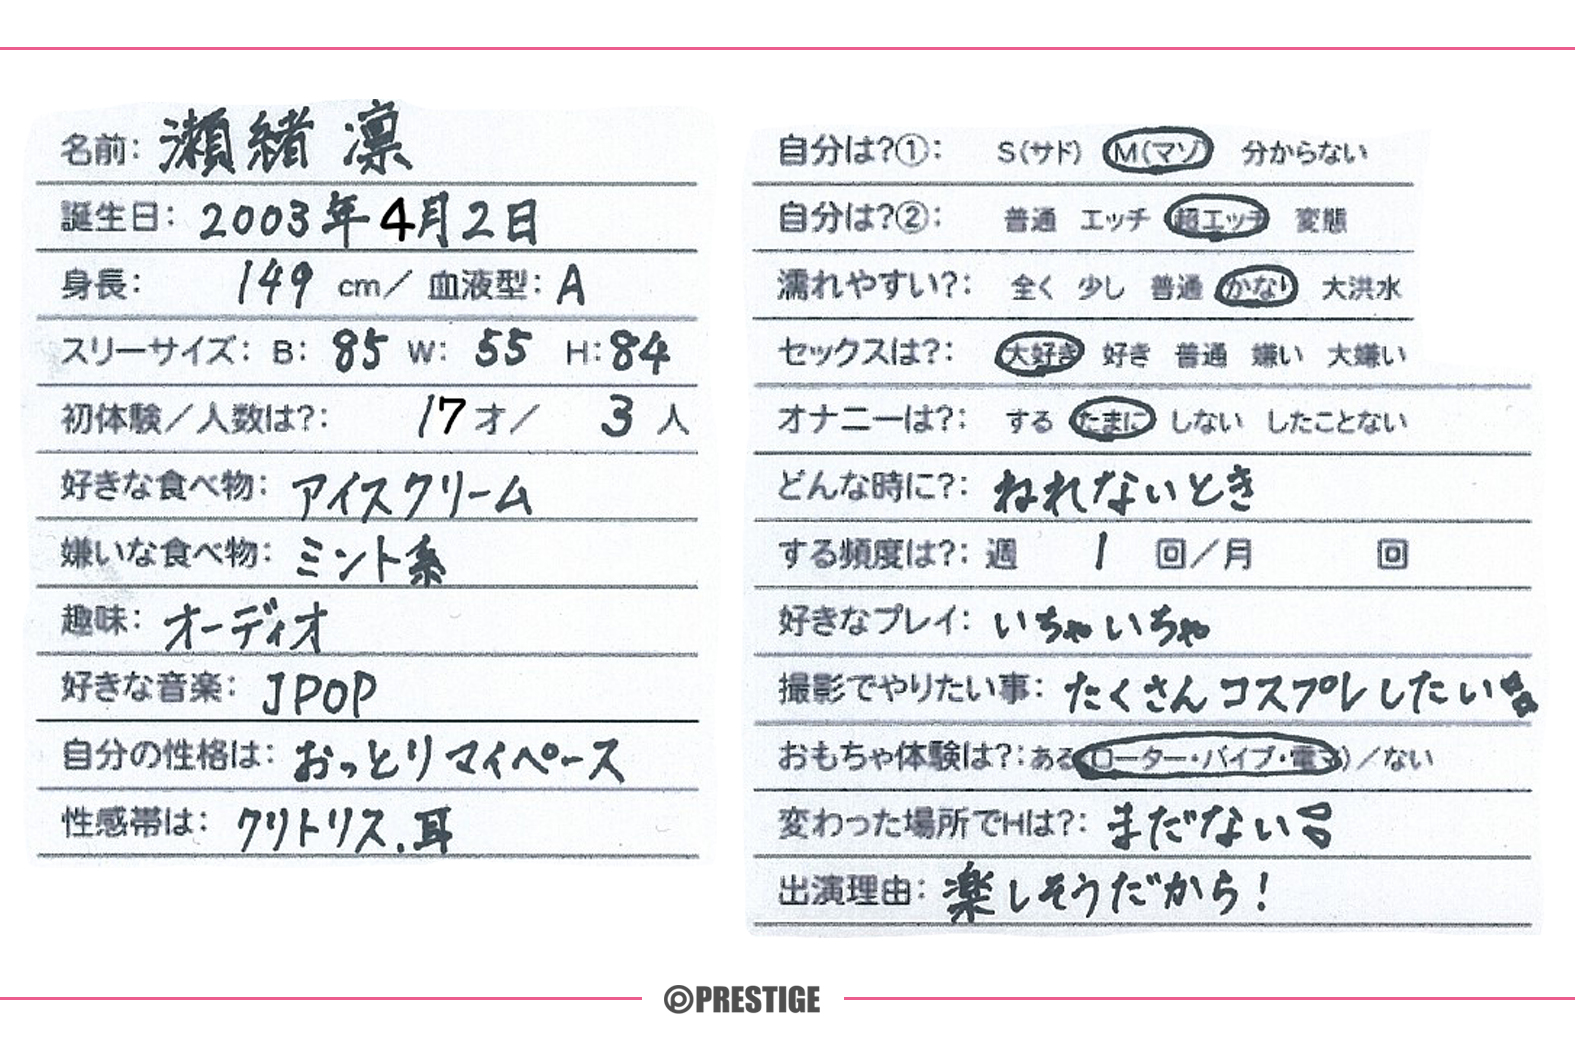 名前: 瀬緒 凛
誕生日: 2003年4月2日
身長: 149 cm/ 血液型: A
スリーサイズ: B: 85 W: 55 H: 84
初体験/人数は?: 17才/ 3人
好きな食べ物: アイスクリーム
嫌いな食べ物: ミント系
趣味: オーディオ
好きな音楽: JPOP
自分の性格は: おっとりマイペース
性感帯は: クリトリス、耳
自分は?①: S(サド) M(マゾ) 分からない
自分は?②: 普通 エッチ 超エッチ 変態
濡れやすい?: 全く 少し 普通 かなり 大洪水
セックスは?: 大好き 好き 普通 嫌い 大嫌い
オナニーは?: する たまに しない したことない
どんな時に?: ねれないとき
する頻度は?: 週 1 回/月 回
好きなプレイ: いちゃいちゃ
撮影でやりたい事: たくさんコスプレしたい
おもちゃ体験は?: ある(ローター・バイブ・電マ)/ない
変わった場所でHは?: まだない
出演理由: 楽しそうだから!
PRESTIGE